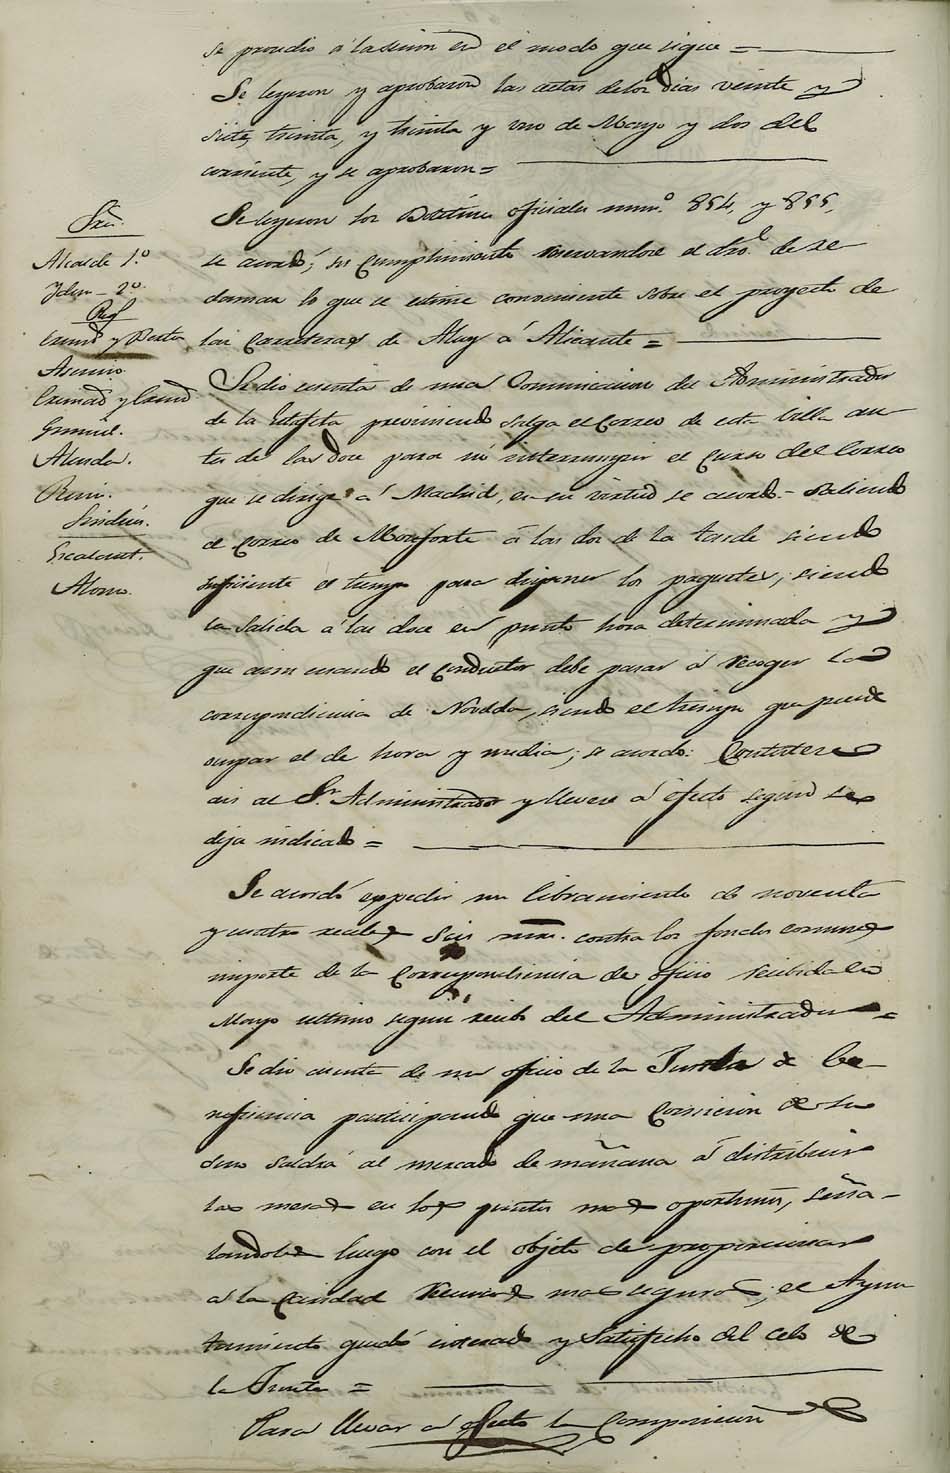 se procedio á la sesion en el modo que sigue =
Se leyeron y aprobaron las actas de los dias veinte y
siete, treinta, y treinta y uno de Mayo y dos del
corriente, y se aprobaron =
Sres.
Alcalde 1.º
Idem - 2.º
Reg.
Asensio
Almida.
Sindicos.
Escalant.
Alom.
Se leyeron los Boletines oficiales num.º 854, y 855,
se acordó; su cumplimiento reservandose el dro. de re
clamar lo que se estime conveniente sobre el proyecto de
las Carreteras de Alcoy á Alicante =
Se dio cuenta de una Comunicacion del Administrador
de la Estafeta previniendo salga el Correo de esta Villa an
tes de las doce para no interrumpir el curso del Correo
que se dirige á Madrid, en su virtud se acordó - saliendo
el Correo de Monforte á las dos de la tarde siendo
suficiente el tiempo para disponer los paquetes; siendo
la salida á las doce en punto hora determinada y
que aun cuando el Conductor debe pasar á recoger la
correspondencia de Novelda, siendo el tiempo que puede
ocupar el de hora y media; se acordó: Contestese
asi al Sr. Administrador y llevese á efecto segun se
deja indicado =
Se acordó expedir un libramiento de noventa
y cuatro reales seis mrs. contra los fondos comunes
importe de la Correspondencia de oficio recibida en
Mayo ultimo segun recibo del Administrador =
Se dio cuenta de un oficio de la Junta de Be-
neficencia participando que una Comision de su
seno saldrá al mercado de mañana á distribuir
las mesas en los puntos mas oportunos, seña-
landoles luego con el objeto de proporcionar
á la Caridad recursos mas seguros; el Ayun
tamiento quedó enterado y satisfecho del celo de
la Junta =
Para llevar á efecto la Composicion del